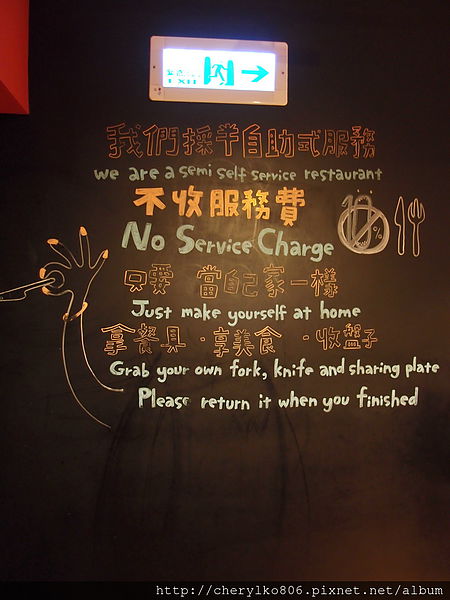 EXIT
我們採半自助式服務
we are a semi self service restaurant
不收服務費
No Service Charge
只要 當自己家一樣
Just make yourself at home
拿餐具·享美食·收盤子
Grab your own fork, knife and sharing plate
Please return it when you finished
http://cherylko806.pixnet.net/album